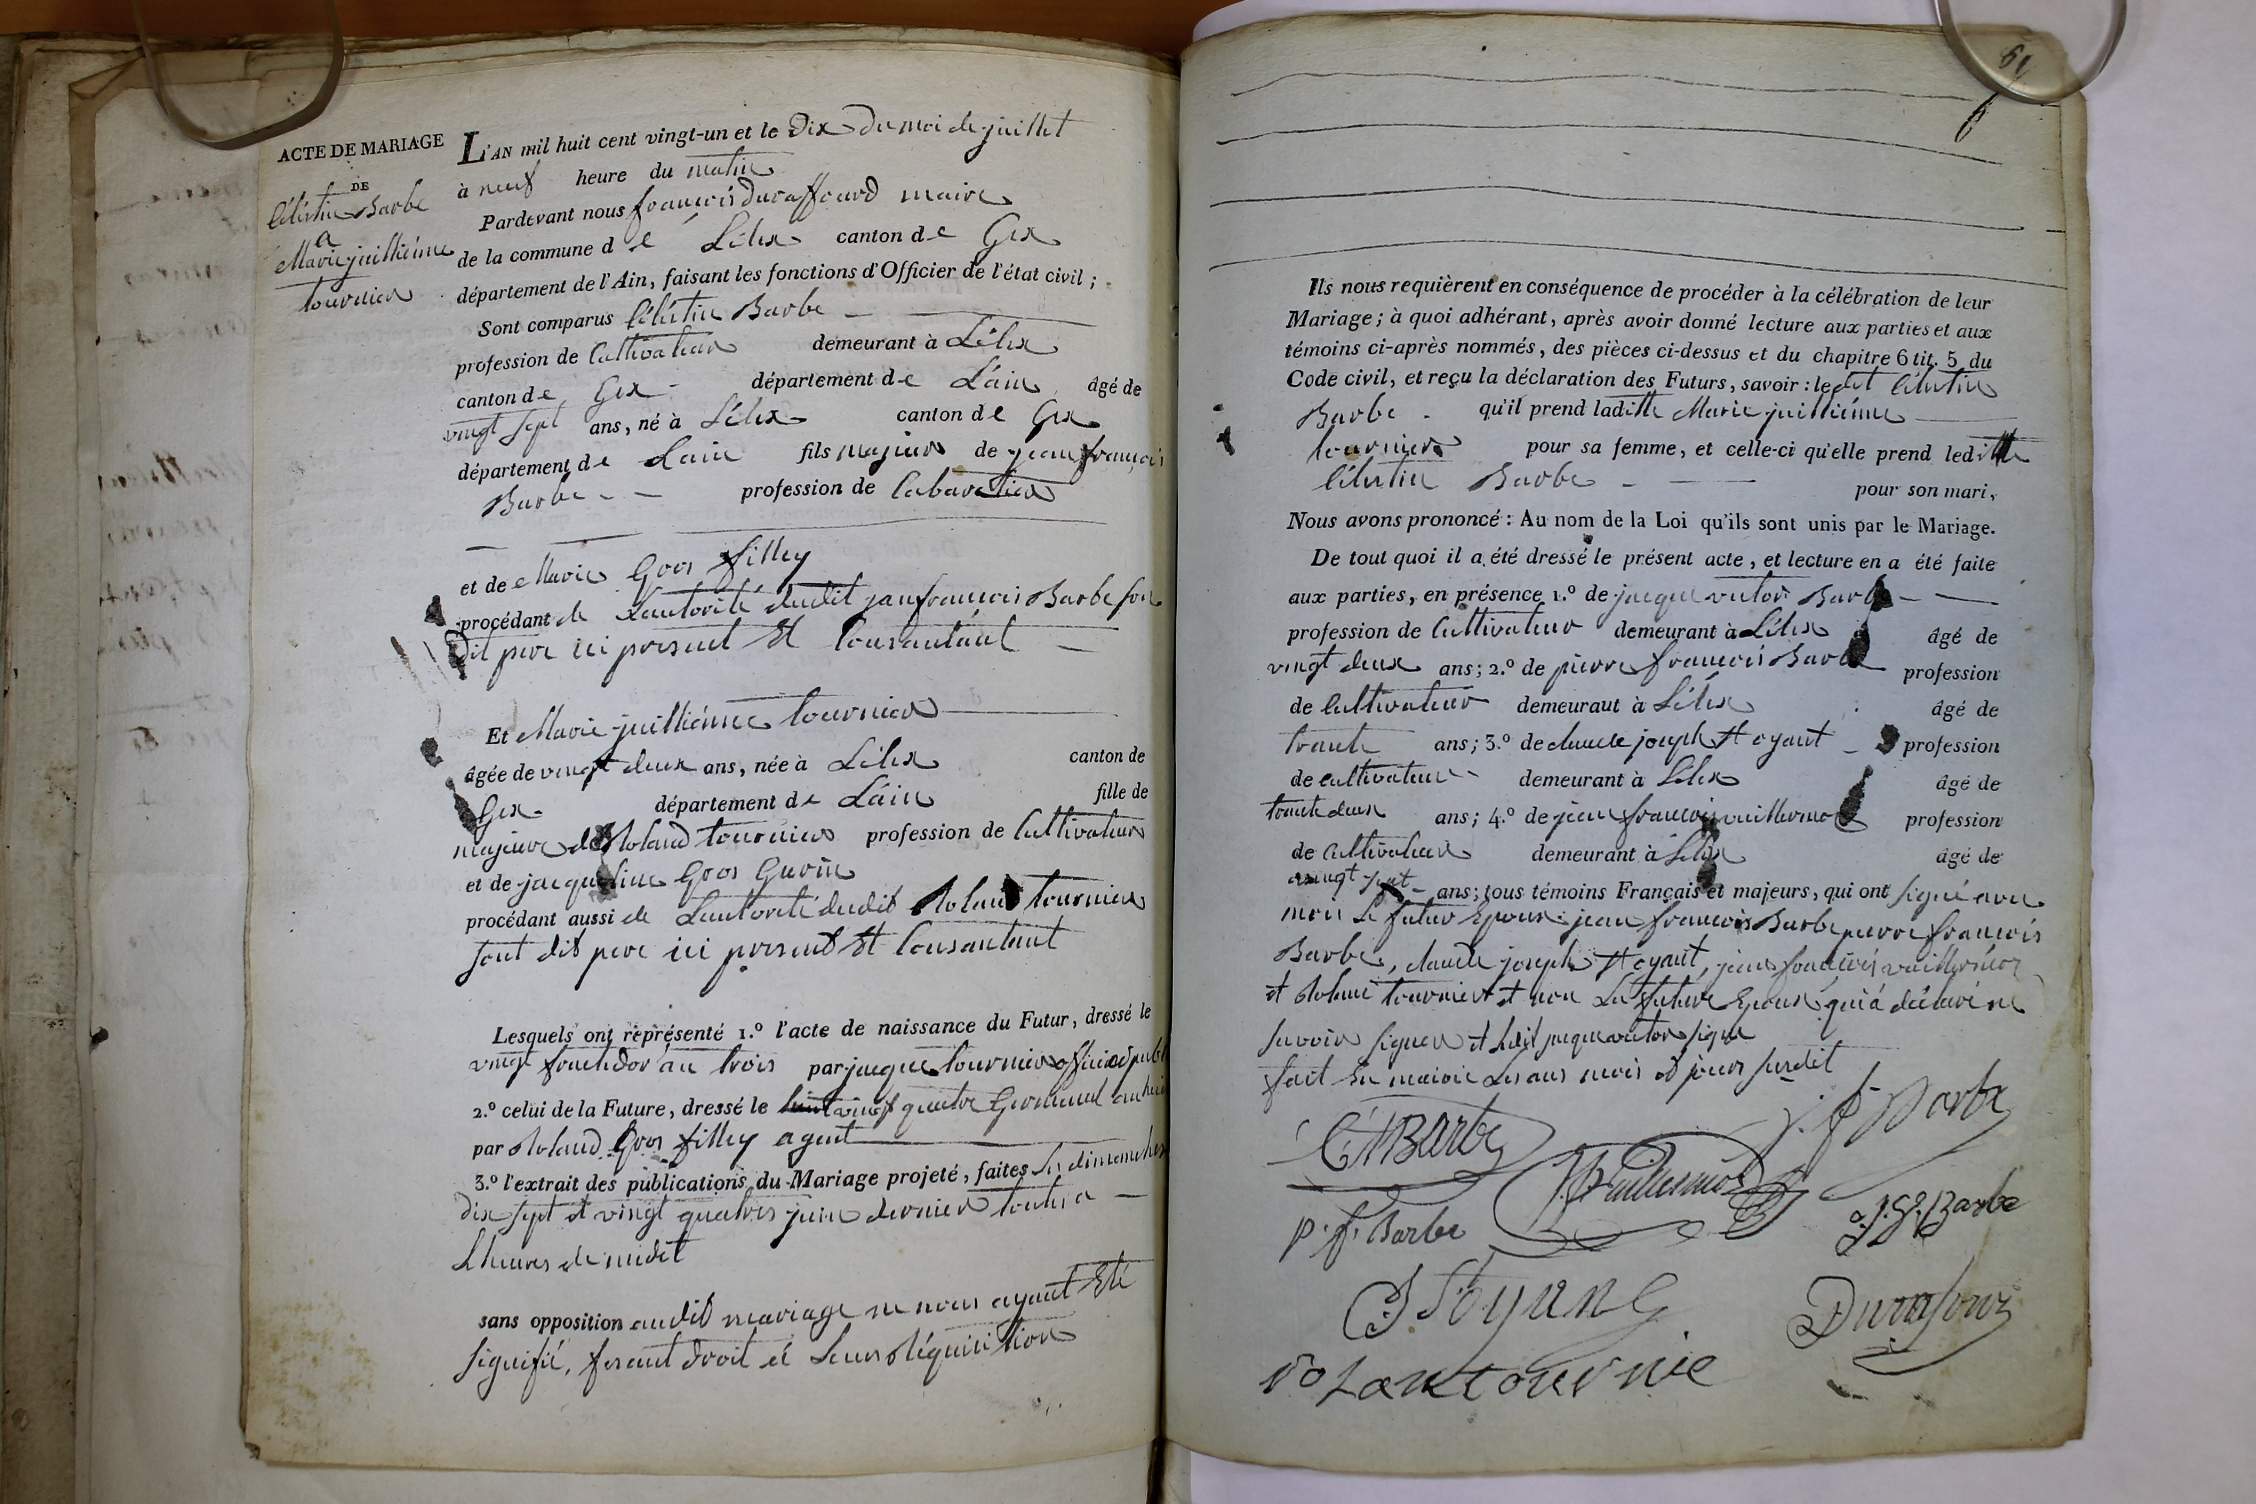 ACTE DE MARIAGE
DE
Célestin Barbe
a
Marie juillienne
tournier
L'AN mil huit cent vingt-un et le Dix du moi de juillet
à neuf heure du matin
Pardevant nous françois Duraffourd maire
de la commune de Lélex canton de Gex
département de l'Ain, faisant les fonctions d'Officier de l'état civil ;
Sont comparus Célestin Barbe
profession de Cultivateur demeurant à Lélex
canton de Gex département de L'ain âgé de
vingt sept ans, né à Lélex canton de Gex
département de Lain fils majeur de jean françois
Barbe profession de Cabaretier
et de Marie Gros filley
procédant de L'autorité dudit jean francois Barbe son
Dit pere ici present Et Consantant
Et Marie juillienne tournier
âgée de vingt deux ans, née à Lélex canton de
Gex département de Lain fille de
majeure de Roland tournier profession de Cultivateur
et de jacqueline Gros Gurin
procédant aussi de Lautorité dudit Roland tournier
sont dit pere ici present Et Consantant
Lesquels ont représenté 1.º l'acte de naissance du Futur, dressé le
vingt fructidor an trois par jacque tournier officier publi
2.º celui de la Future, dressé le vingt quatre Germinal an
par Roland Gros filley agent
3.º l'extrait des publications du Mariage projeté, faites les dimanches
dix sept et vingt quatre juin dernier toutes a
L'heures de midit
sans opposition audit mariage ne nous ayant Eté
signifié, fesant droit à Leur Réquisition
61
Ils nous requièrent en conséquence de procéder à la célébration de leur
Mariage ; à quoi adhérant, après avoir donné lecture aux parties et aux
témoins ci-après nommés, des pièces ci-dessus et du chapitre 6 tit. 5 du
Code civil, et reçu la déclaration des Futurs, savoir : le dit Célestin
Barbe qu'il prend laditte Marie juillienne
tournier pour sa femme, et celle-ci qu'elle prend ledit
Célestin Barbe pour son mari,
Nous avons prononcé : Au nom de la Loi qu'ils sont unis par le Mariage.
De tout quoi il a été dressé le présent acte, et lecture en a été faite
aux parties, en présence 1.º de jacque victor Barbe
profession de Cultivateur demeurant à Lélex âgé de
vingt deux ans ; 2.º de pierre francois Barbe profession
de Cultivateur demeuraut à Lélex âgé de
trante ans ; 3.º de claude joseph St oyant profession
de cultivateur demeurant à Lélex âgé de
trante deux ans ; 4.º de jean francois vuillermoz profession
de Cultivateur demeurant à Lélex âgé de
vingt sept ans ; tous témoins Français et majeurs, qui ont signé avec
nous Le futur Epoux jean francois Barbe pierre francois
Barbe, claude joseph St oyant, jean francois vuillermoz
et Roland tournier et non La future Epouse qui a déclaré ne
savoir signer et ledit jacque victor signe
fait En mairie Les ans mois et jour susdit
C't Barbe
j. f. Barbe
Vuillermoz
p. f. Barbe
Barbe
C J St oyant
Durafour
rolan tournie